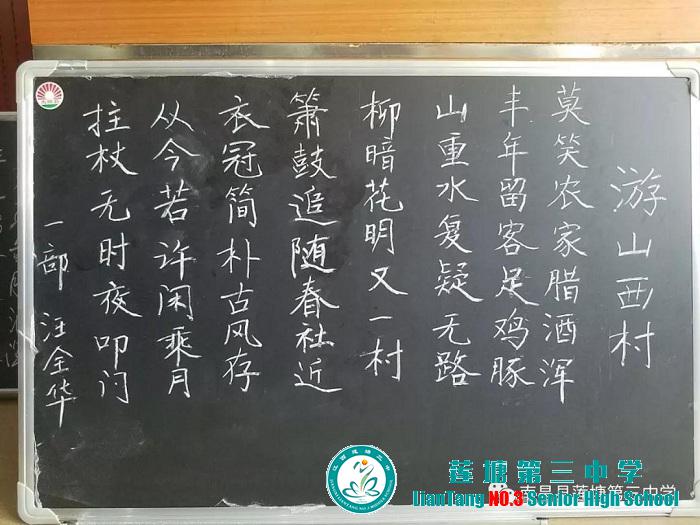 游山西村
莫笑农家腊酒浑
丰年留客足鸡豚
山重水复疑无路
柳暗花明又一村
箫鼓追随春社近
衣冠简朴古风存
从今若许闲乘月
拄杖无时夜叩门
一部 汪全华
莲塘第三中学
LianTang NO.3 Senior High School
南昌县莲塘第三中学